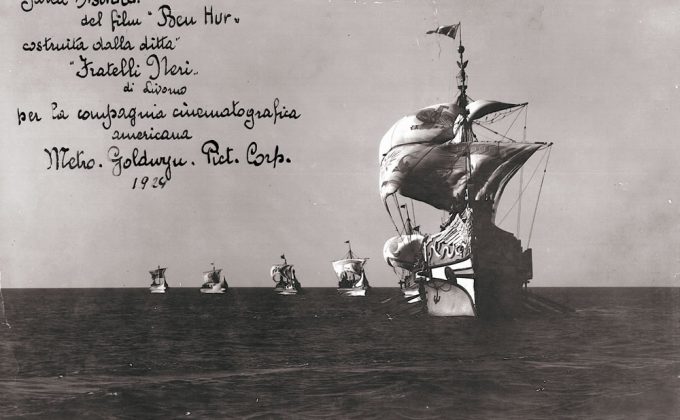 del film "Ben Hur"
costruita dalla ditta"
"Fratelli Neri"
di Livorno
per la compagnia cinematografica
americana
Metro. Goldwyn. Pict. Corp.
1924